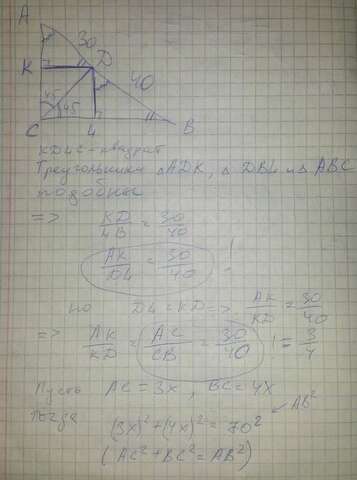 A
30
K
D
40
45
45
C
4
B
KD4C - квадрат
Треугольники △ADK, △DB4 и △ABC
подобны
=> KD/4B = 30/40
AK/D4 = 30/40 !
но D4 = KD => AK/KD = 30/40
=> AK/KD = AC/CB = 30/40 ! = 3/4
Пусть AC = 3x, BC = 4x
тогда (3x)² + (4x)² = 70² ← AB²
(AC² + BC² = AB²)